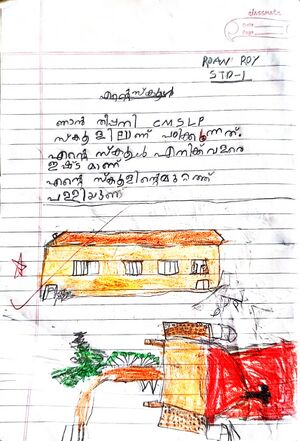 classmate
Date
Page
ROAN ROY
STD-1
എന്റെസ്കൂൾ
ഞാൻ തിപ്പനി CMSLP
സ്കൂളിലാണ് പഠിക്കുന്നത്.
എന്റെ സ്കൂൾ എനിക്ക് വളരെ
ഇഷ്ടമാണ്
എന്റെ സ്കൂളിന്റെമുറ്റത്ത്
പള്ളിയുണ്ട്